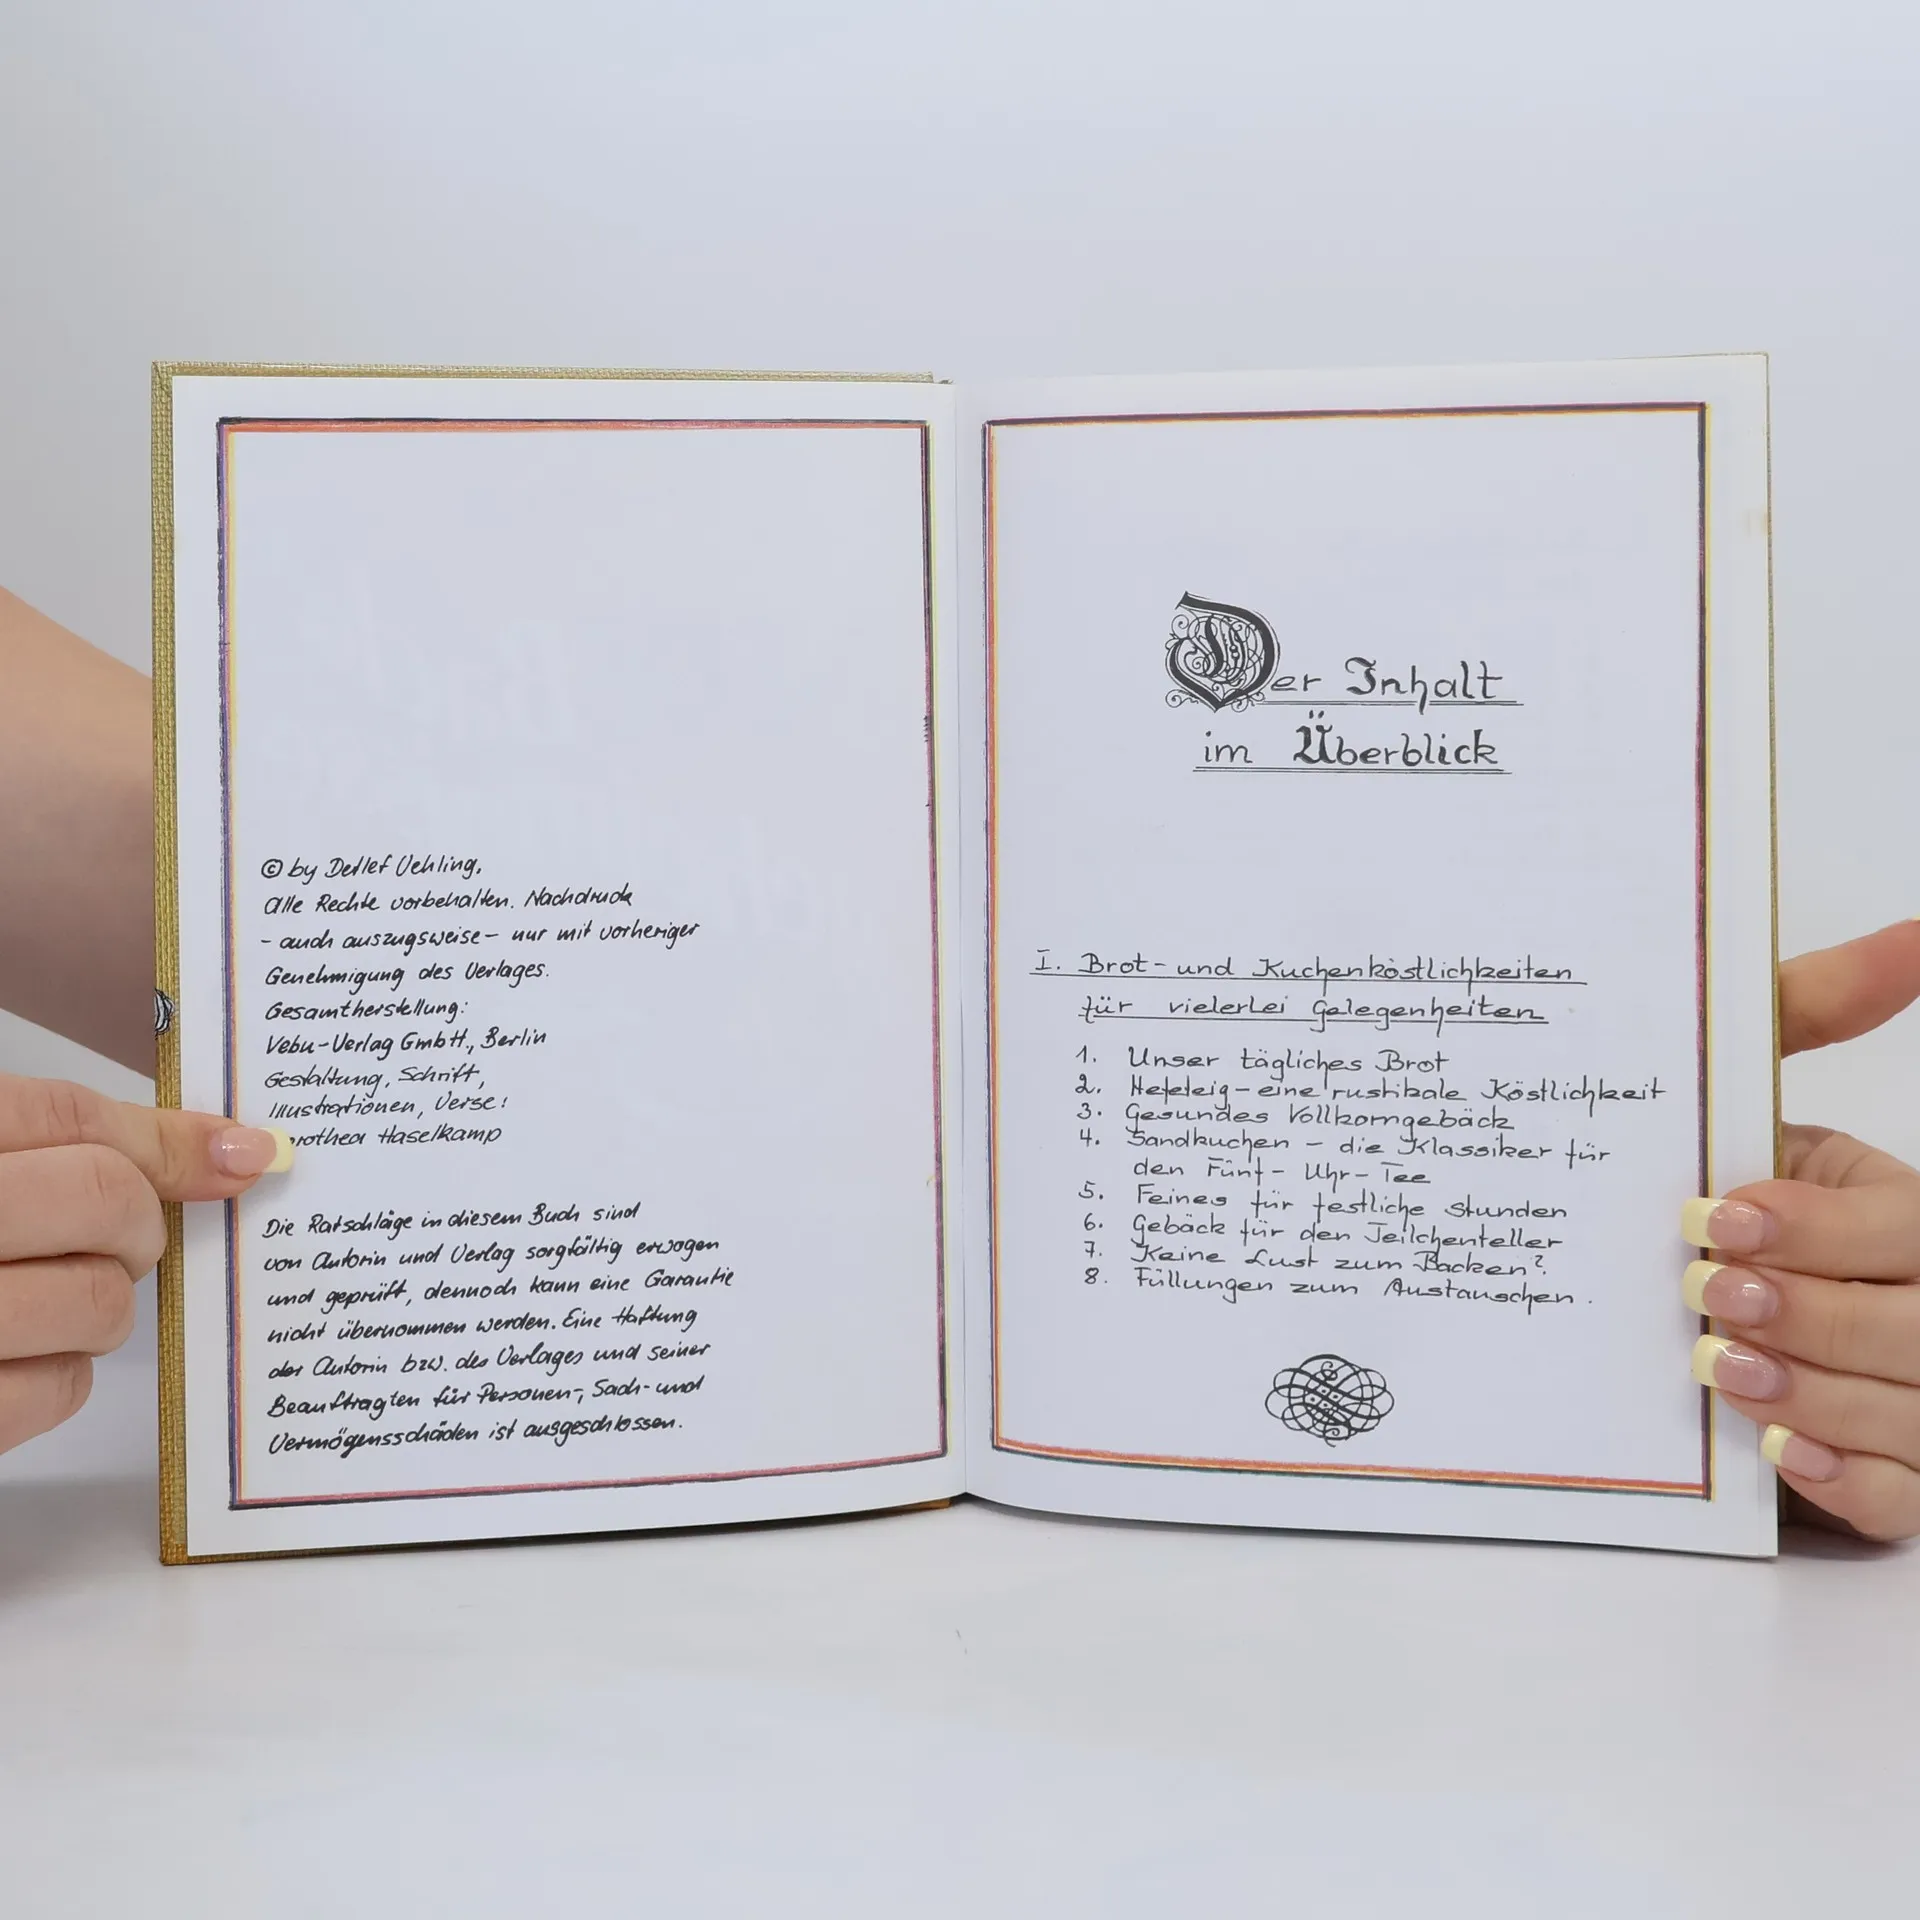 © by Detlef Uehling,
Alle Rechte vorbehalten. Nachdruck
- auch auszugsweise - nur mit vorheriger
Genehmigung des Verlages.
Gesamtherstellung:
Vebu-Verlag GmbH., Berlin
Gestaltung, Schrift,
Illustrationen, Verse:
orothea Haselkamp
Die Ratschläge in diesem Buch sind
von Autorin und Verlag sorgfältig erwogen
und geprüft, dennoch kann eine Garantie
nicht übernommen werden. Eine Haftung
der Autorin bzw. des Verlages und seiner
Beauftragten für Personen-, Sach- und
Vermögensschäden ist ausgeschlossen.
Der Inhalt
im Überblick
I. Brot- und Kuchenköstlichkeiten
für vielerlei Gelegenheiten
1. Unser tägliches Brot
2. Hefeteig - eine rustikale Köstlichkeit
3. Gesundes Vollkorngebäck
4. Sandkuchen - die Klassiker für
den Fünf- Uhr- Tee
5. Feines für festliche Stunden
6. Gebäck für den Teilchenteller
7. Keine Lust zum Backen?
8. Füllungen zum Austauschen.